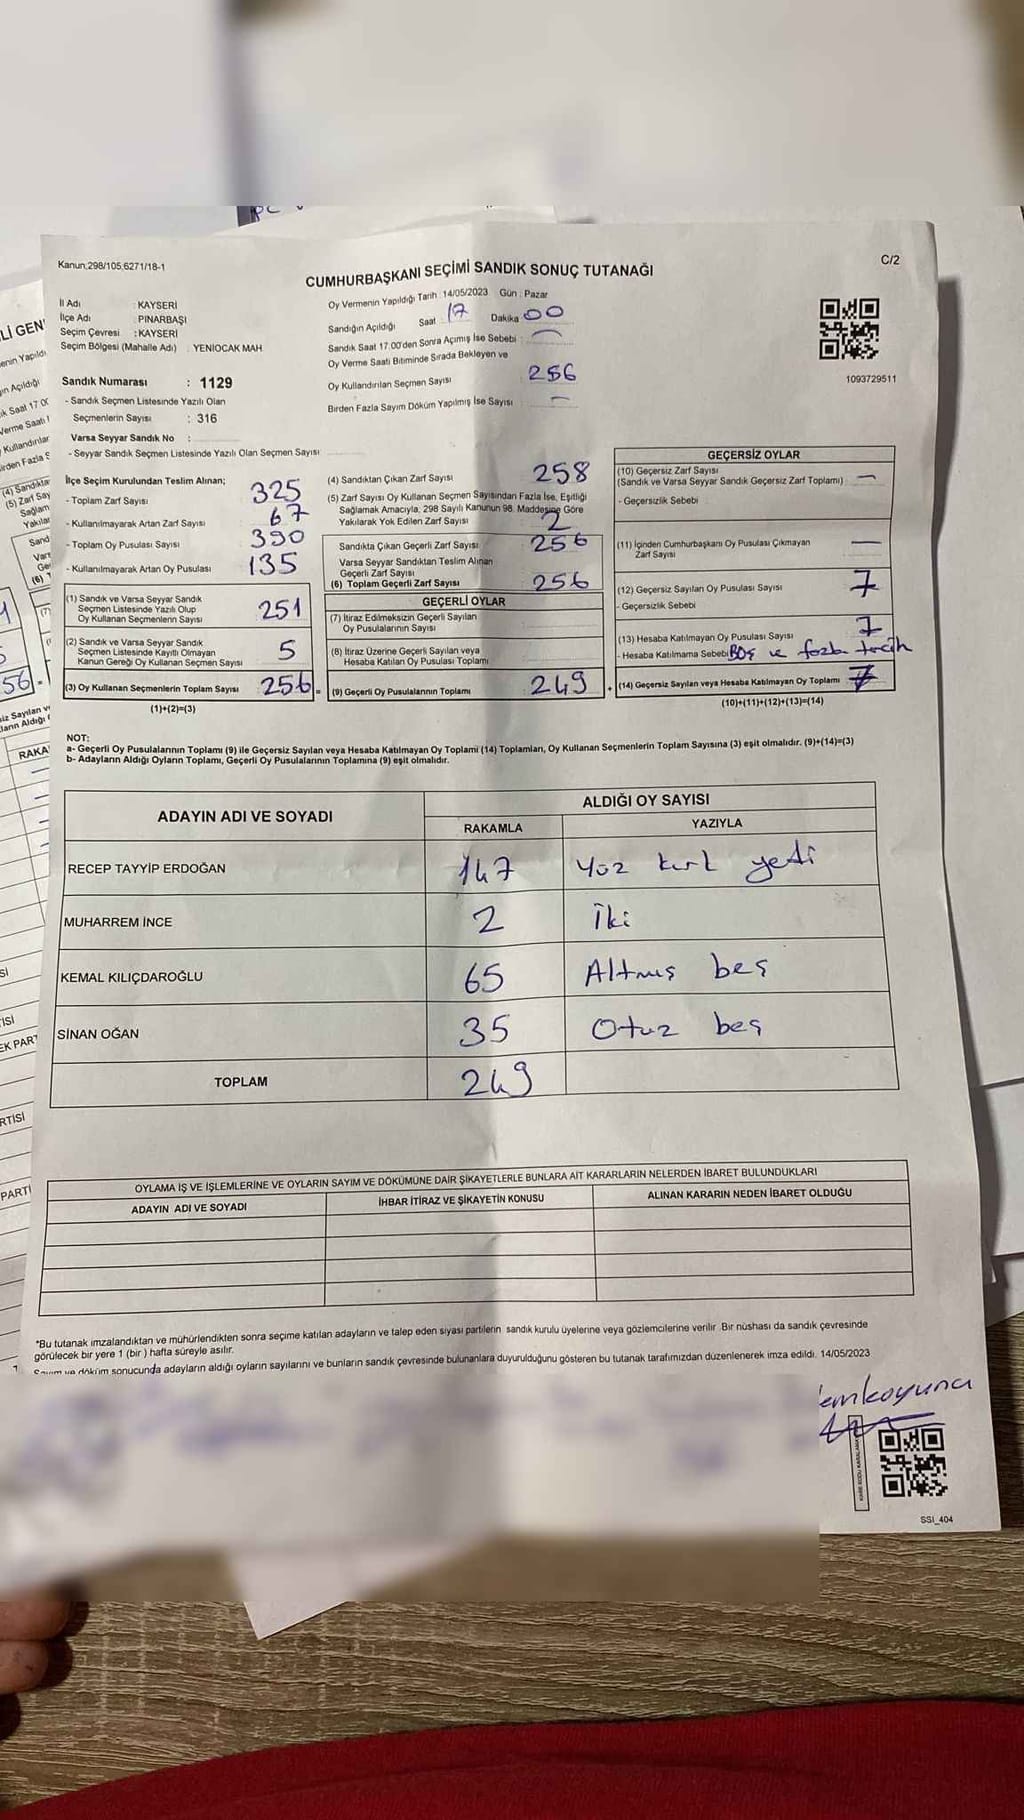 Kanun;298/105;6271/18-1
C/2
CUMHURBAŞKANI SEÇİMİ SANDIK SONUÇ TUTANAĞI
İl Adı : KAYSERİ
İlçe Adı : PINARBAŞI
Seçim Çevresi : KAYSERİ
Seçim Bölgesi (Mahalle Adı) : YENİOCAK MAH.
Sandık Numarası : 1129
- Sandık Seçmen Listesinde Yazılı Olan
Seçmenlerin Sayısı : 316
Varsa Seyyar Sandık No :
- Seyyar Sandık Seçmen Listesinde Yazılı Olan Seçmen Sayısı
Oy Vermenin Yapıldığı Tarih : 14/05/2023 Gün : Pazar
Sandığın Açıldığı Saat 17 Dakika 00
Sandık Saat 17:00'den Sonra Açımış İse Sebebi : —
Oy Verme Saati Bitiminde Sırada Bekleyen ve
Oy Kullandırılan Seçmen Sayısı 256
Birden Fazla Sayım Döküm Yapılmış İse Sayısı : —
1093729511
İlçe Seçim Kurulundan Teslim Alınan;
- Toplam Zarf Sayısı 325
- Kullanılmayarak Artan Zarf Sayısı 67
- Toplam Oy Pusulası Sayısı 390
- Kullanılmayarak Artan Oy Pusulası 135
(1) Sandık ve Varsa Seyyar Sandık
Seçmen Listesinde Yazılı Olup
Oy Kullanan Seçmenlerin Sayısı 251
(2) Sandık ve Varsa Seyyar Sandık
Seçmen Listesinde Kayıtlı Olmayan
Kanun Gereği Oy Kullanan Seçmen Sayısı 5
(3) Oy Kullanan Seçmenlerin Toplam Sayısı 256
(1)+(2)=(3)
(4) Sandıktan Çıkan Zarf Sayısı 258
(5) Zarf Sayısı Oy Kullanan Seçmen Sayısından Fazla İse, Eşitliği
Sağlamak Amacıyla, 298 Sayılı Kanunun 98. Maddesine Göre
Yakılarak Yok Edilen Zarf Sayısı 2
Sandıkta Çıkan Geçerli Zarf Sayısı 256
Varsa Seyyar Sandıktan Teslim Alınan
Geçerli Zarf Sayısı
(6) Toplam Geçerli Zarf Sayısı 256
GEÇERLİ OYLAR
(7) İtiraz Edilmeksizin Geçerli Sayılan
Oy Pusulalarının Sayısı
(8) İtiraz Üzerine Geçerli Sayılan veya
Hesaba Katılan Oy Pusulası Toplamı
(9) Geçerli Oy Pusulalarının Toplamı 249
GEÇERSİZ OYLAR
(10) Geçersiz Zarf Sayısı
(Sandık ve Varsa Seyyar Sandık Geçersiz Zarf Toplamı) —
- Geçersizlik Sebebi
(11) İçinden Cumhurbaşkanı Oy Pusulası Çıkmayan
Zarf Sayısı —
(12) Geçersiz Sayılan Oy Pusulası Sayısı 7
- Geçersizlik Sebebi
(13) Hesaba Katılmayan Oy Pusulası Sayısı 7
- Hesaba Katılmama Sebebi Boş ve fazla tercih
(14) Geçersiz Sayılan veya Hesaba Katılmayan Oy Toplamı 7
(10)+(11)+(12)+(13)=(14)
NOT:
a- Geçerli Oy Pusulalarının Toplamı (9) ile Geçersiz Sayılan veya Hesaba Katılmayan Oy Toplamı (14) Toplamları, Oy Kullanan Seçmenlerin Toplam Sayısına (3) eşit olmalıdır. (9)+(14)=(3)
b- Adayların Aldığı Oyların Toplamı, Geçerli Oy Pusulalarının Toplamına (9) eşit olmalıdır.
ADAYIN ADI VE SOYADI
ALDIĞI OY SAYISI
RAKAMLA YAZIYLA
RECEP TAYYİP ERDOĞAN 147 Yüz kırk yedi
MUHARREM İNCE 2 İki
KEMAL KILIÇDAROĞLU 65 Altmış beş
SİNAN OĞAN 35 Otuz beş
TOPLAM 249
OYLAMA İŞ VE İŞLEMLERİNE VE OYLARIN SAYIM VE DÖKÜMÜNE DAİR ŞİKAYETLERLE BUNLARA AİT KARARLARIN NELERDEN İBARET BULUNDUKLARI
ADAYIN ADI VE SOYADI İHBAR İTİRAZ VE ŞİKAYETİN KONUSU ALINAN KARARIN NEDEN İBARET OLDUĞU
*Bu tutanak imzalandıktan ve mühürlendikten sonra seçime katılan adayların ve talep eden siyasi partilerin sandık kurulu üyelerine veya gözlemcilerine verilir. Bir nüshası da sandık çevresinde
görülecek bir yere 1 (bir) hafta süreyle asılır.
Sayım ve döküm sonucunda adayların aldığı oyların sayılarını ve bunların sandık çevresinde bulunanlara duyurulduğunu gösteren bu tutanak tarafımızdan düzenlenerek imza edildi. 14/05/2023
emkoyuncu
SSI_404